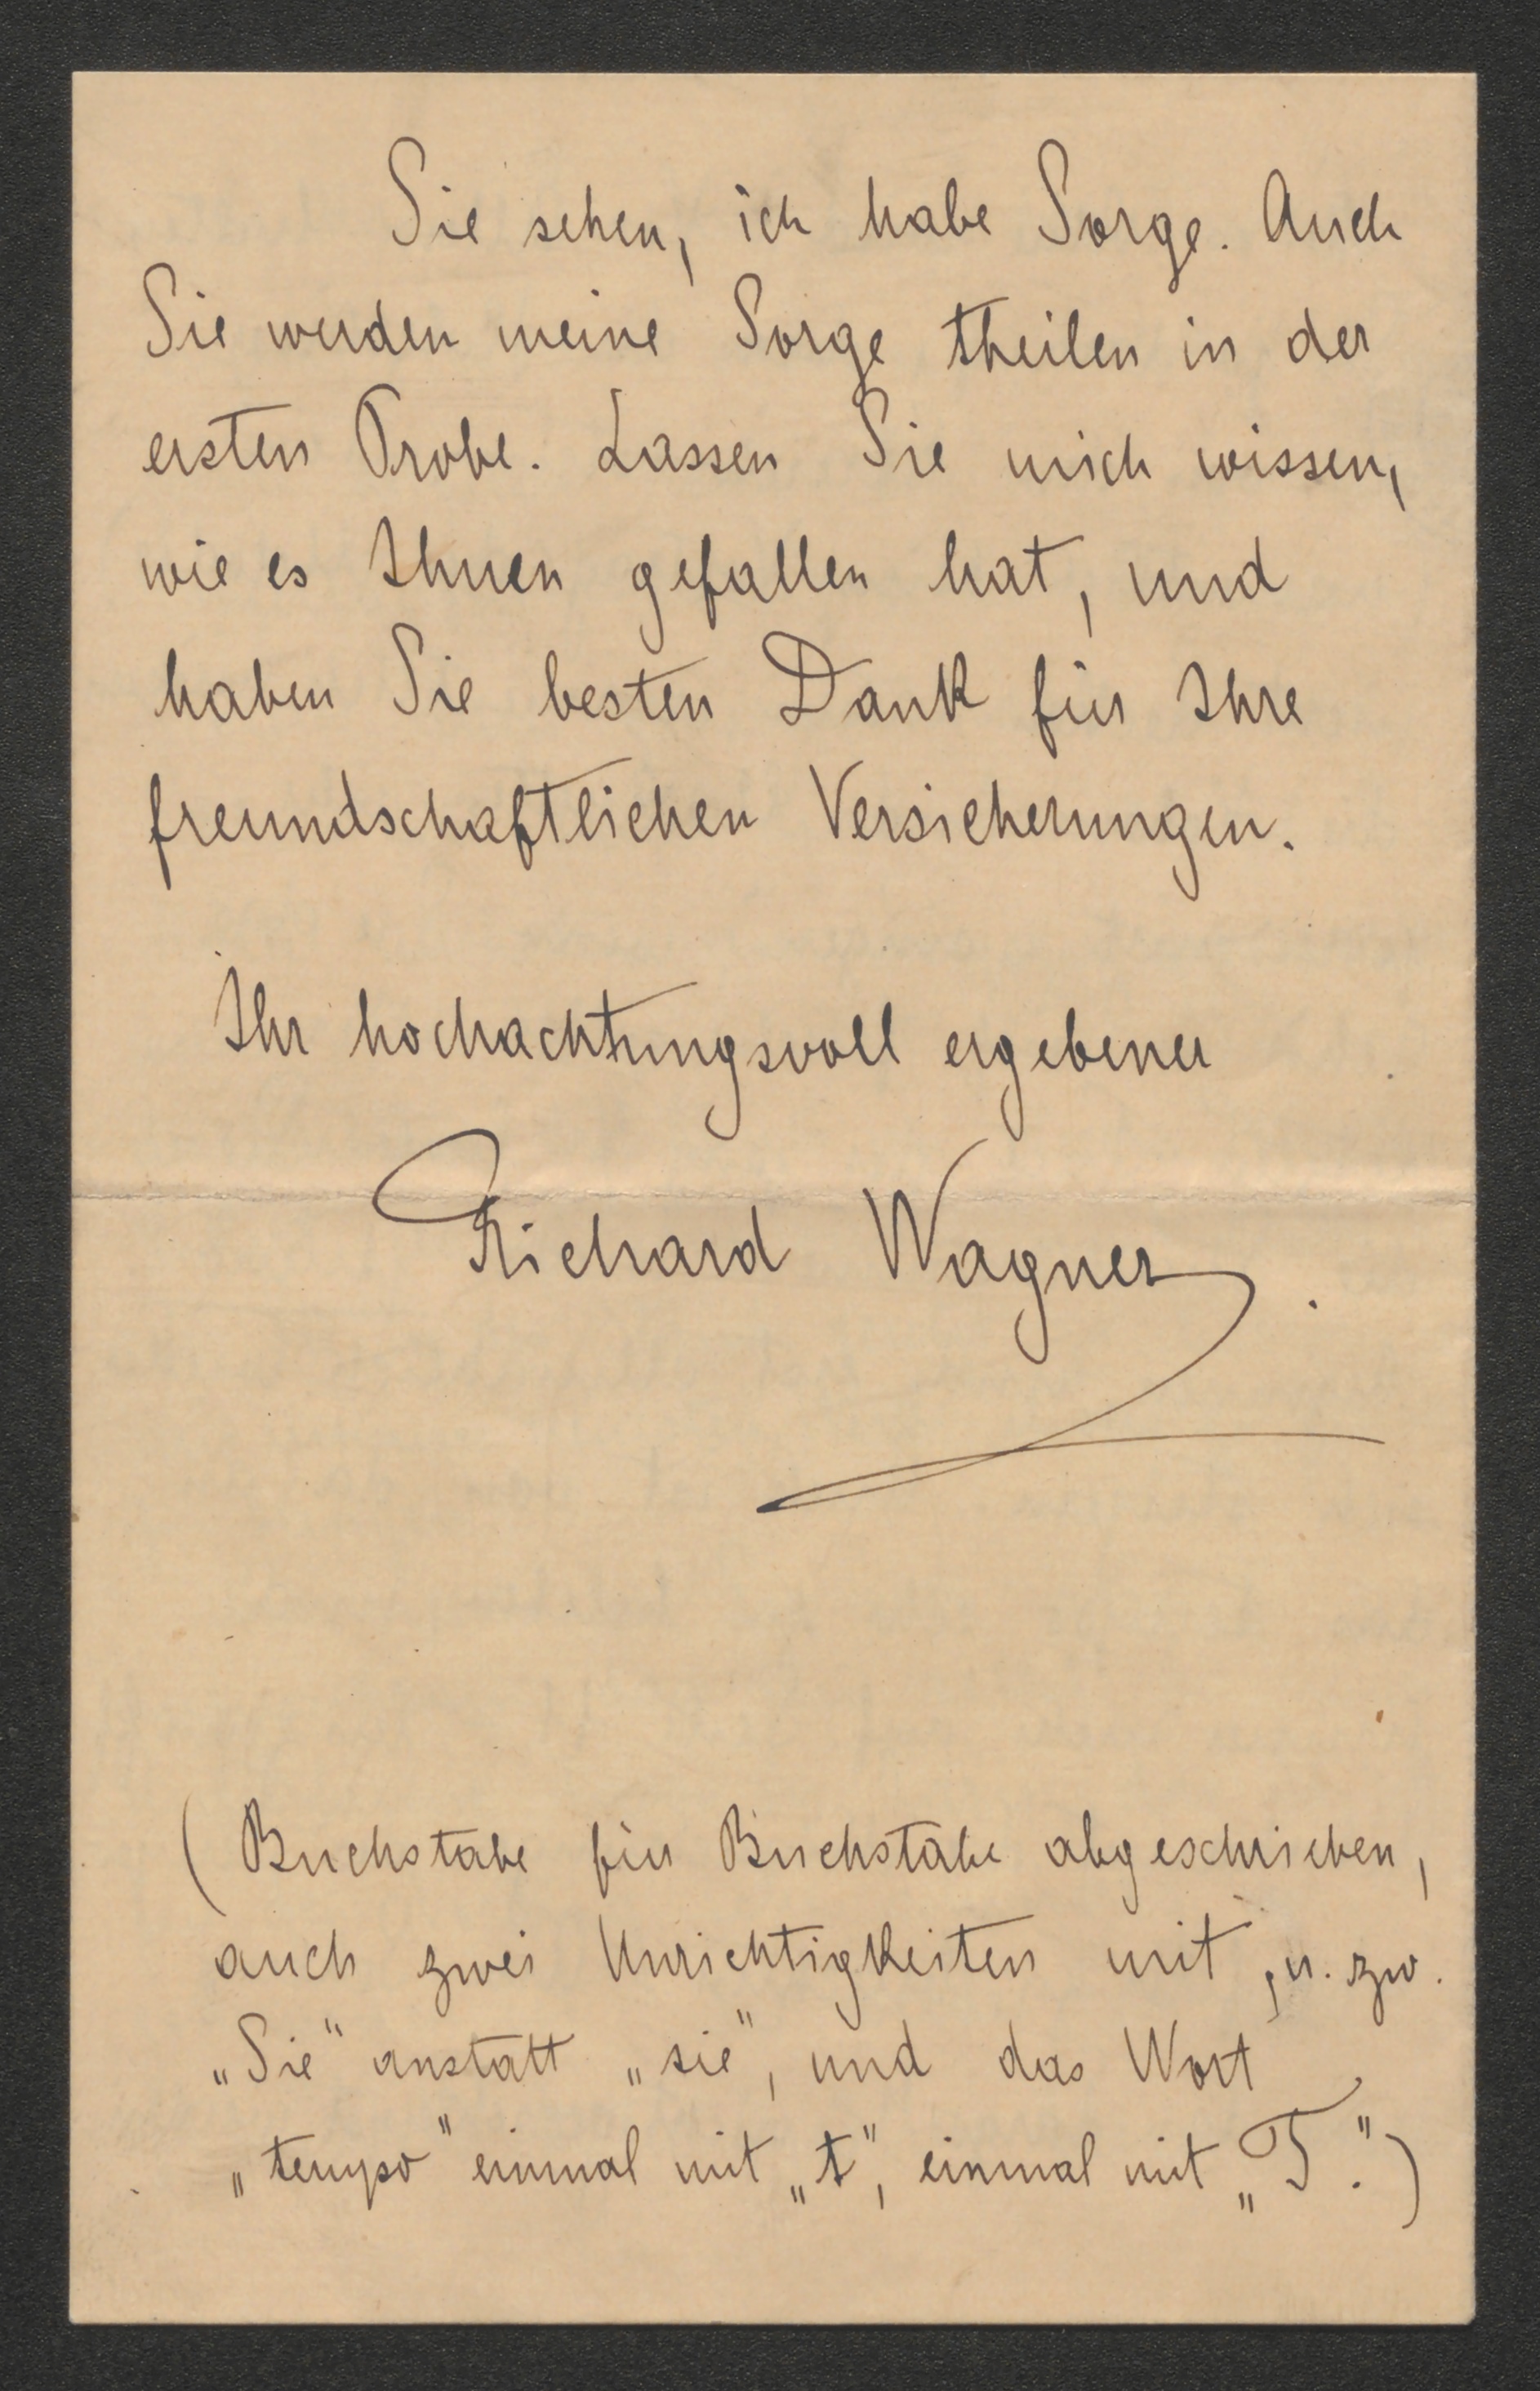 Sie sehen, ich habe Sorge. Auch
Sie werden meine Sorge theilen in der
ersten Probe. Lassen Sie mich wissen,
wie es Ihnen gefallen hat, und
haben Sie besten Dank für Ihre
freundschaftlichen Versicherungen.
Ihr hochachtungsvoll ergebener
Richard Wagner.
(Buchstabe für Buchstabe abgeschrieben,
auch zwei Unrichtigkeiten mit, u. zw.
„Sie“ anstatt „sie“, und das Wort
„tempo“ einmal mit „t“, einmal mit „T.“)